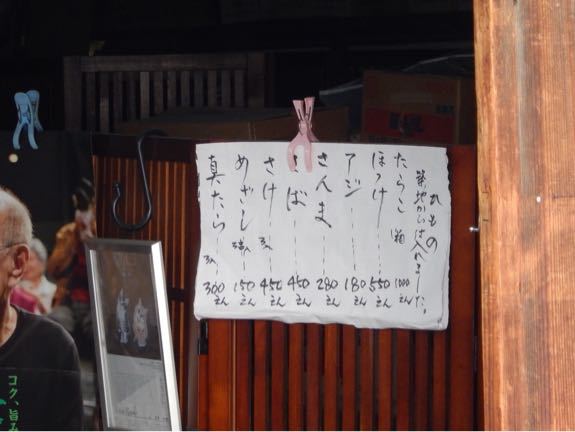 丸もの
築地からは入れました。
たらこ 箱 1000えん
ほっけ 550えん
アジ 180えん
さんま 280えん
さば 450えん
さけ 450えん
めざし 150えん
真たら 300えん
コク、旨み